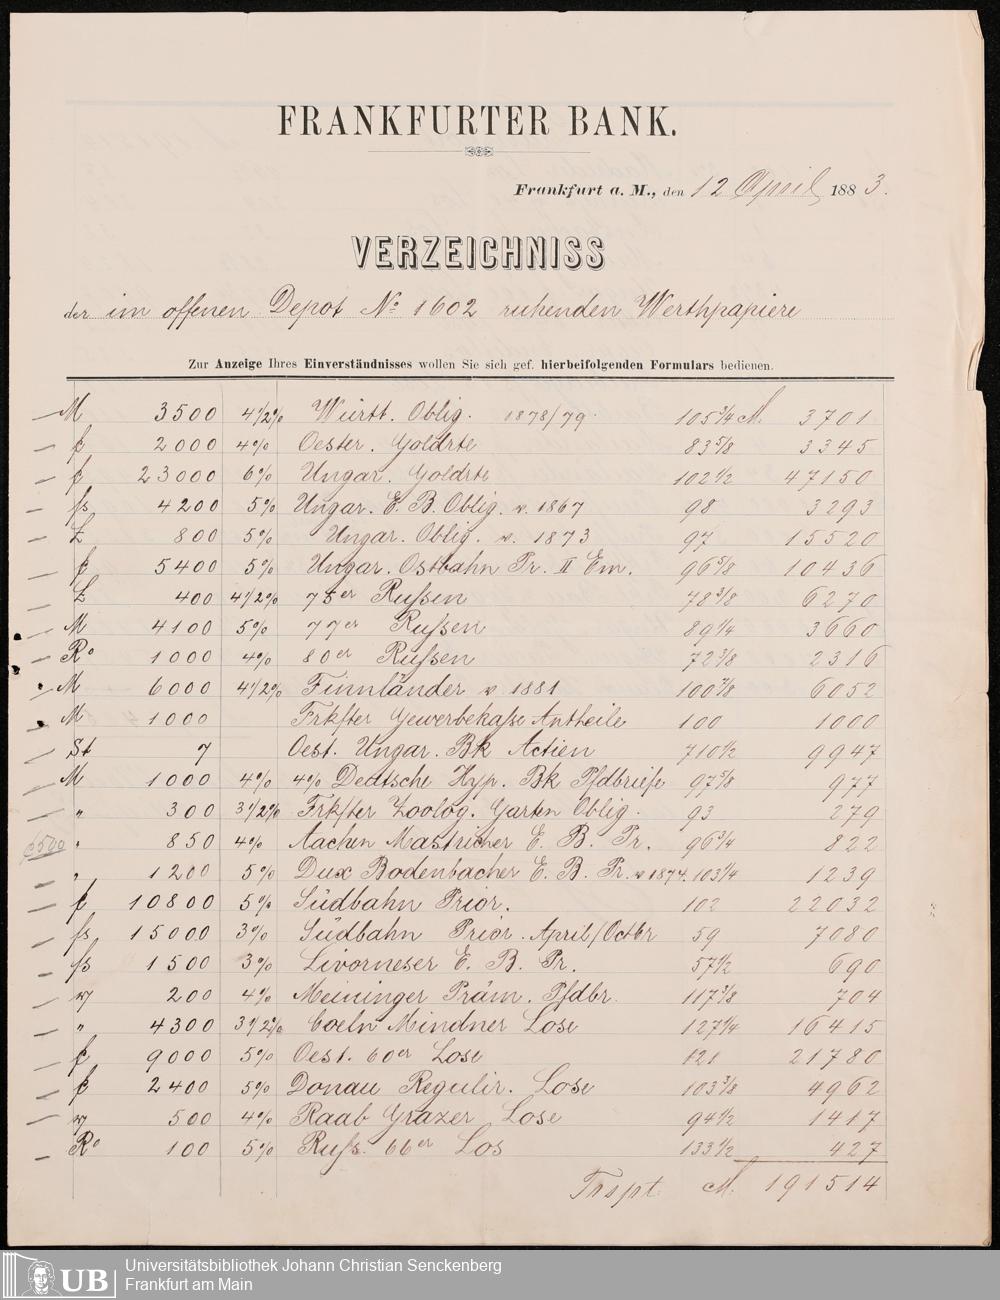 FRANKFURTER BANK.
Frankfurt a. M., den 12 April 1883.
VERZEICHNISS
der im offenen Depot No 1602 ruhenden Werthpapiere
Zur Anzeige Ihres Einverständnisses wollen Sie sich gef. hierbeifolgenden Formulars bedienen.
M 3500 4 1/2% Württ. Oblig. 1878/79. 105 3/4 M. 3701
f 2000 4% Oester. Goldrte 83 5/8 3345
f 23000 6% Ungar. Goldrte 102 1/2 47150
fs 4200 5% Ungar. E. B. Oblig. v. 1867 98 3293
£ 800 5% Ungar. Oblig. v. 1873 97 15520
f 5400 5% Ungar. Ostbahn Pr. II Em. 96 5/8 10436
£ 400 4 1/2% 75er Rußen 78 3/8 6270
M 4100 5% 77er Rußen 89 1/4 3660
Ro 1000 4% 80er Rußen 72 3/8 2316
M 6000 4 1/2% Finnländer v 1881 100 7/8 6052
M 1000 Frkfter Gewerbekaße Antheile 100 1000
St 7 Oest. Ungar. Bk Actien 710 1/2 9947
M 1000 4% 4% Deutsche Hyp. Bk Pfdbriefe 97 5/8 977
" 300 3 1/2% Frkfter Zoolog. Garten Oblig. 93 279
6500 " 850 4% Aachen Mastricher E. B. Pr. 96 3/4 822
" 1200 5% Dux Bodenbacher E. B. Pr. v 1874. 103 1/4 1239
f 10800 5% Südbahn Prior. 102 22032
fs 15000 3% Südbahn Prior. April/Octbr 59 7080
fs 1500 3% Livorneser E. B. Pr. 57 1/2 690
200 4% Meininger Präm. Pfdbr. 117 3/8 704
" 4300 3 1/2% Coeln Mindner Lose 127 1/4 16415
f 9000 5% Oest. 60er Lose 121 21780
f 2400 5% Donau Regulir. Lose 103 3/8 4962
500 4% Raab Grazer Lose 94 1/2 1417
Ro 100 5% Ruß. 66er Los 133 1/2 427
Trspt. M. 191514
UB
Universitätsbibliothek Johann Christian Senckenberg
Frankfurt am Main